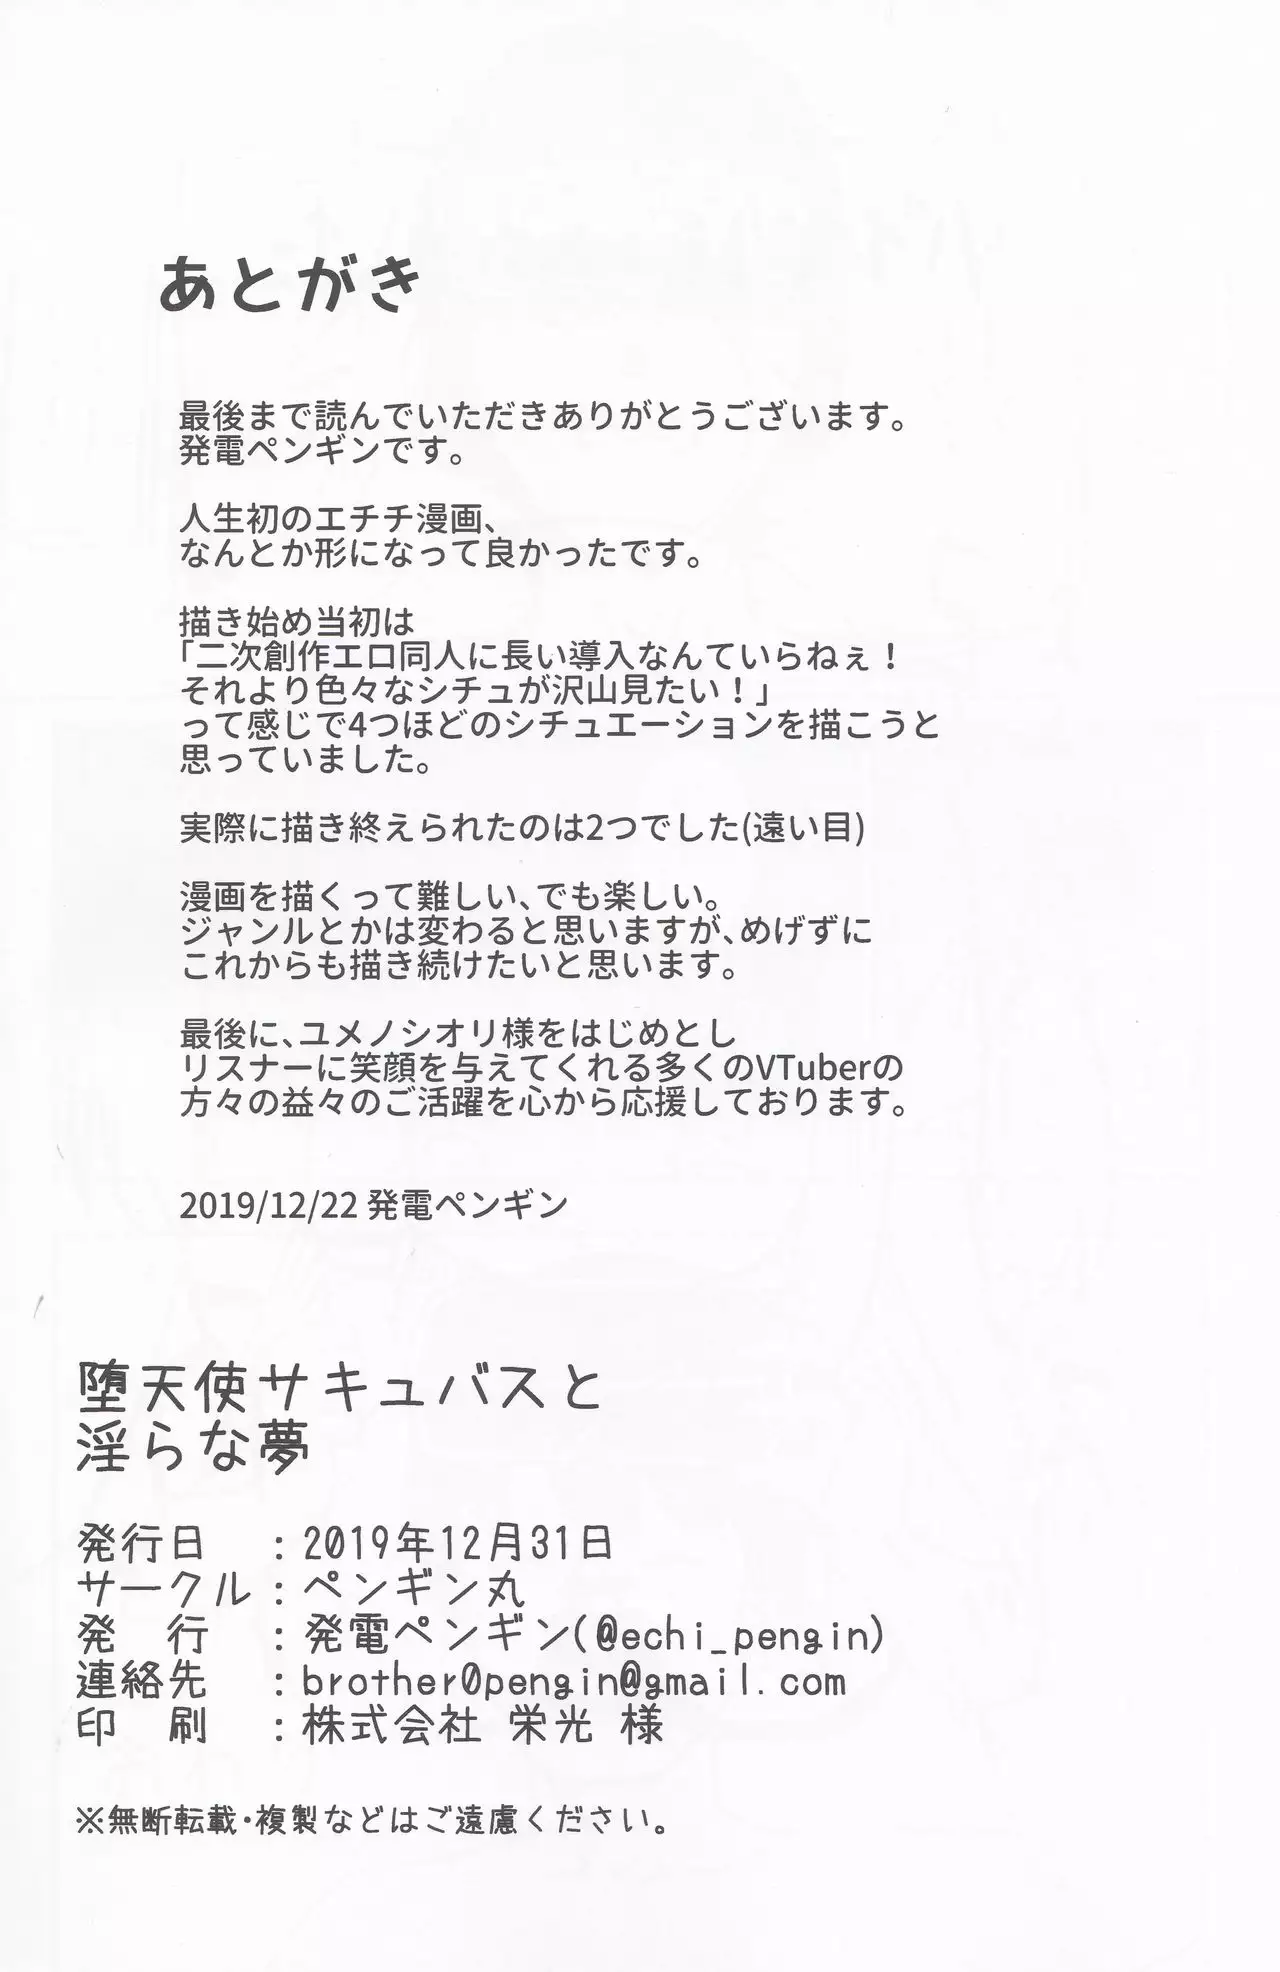 あとがき
最後まで読んでいただきありがとうございます。
発電ペンギンです。
人生初のエチチ漫画、
なんとか形になって良かったです。
描き始め当初は
「二次創作エロ同人に長い導入なんていらねぇ！
それより色々なシチュが沢山見たい！」
って感じで4つほどのシチュエーションを描こうと
思っていました。
実際に描き終えられたのは2つでした(遠い目)
漫画を描くって難しい、でも楽しい。
ジャンルとかは変わると思いますが、めげずに
これからも描き続けたいと思います。
最後に、ユメノシオリ様をはじめとし
リスナーに笑顔を与えてくれる多くのVTuberの
方々の益々のご活躍を心から応援しております。
2019/12/22 発電ペンギン
堕天使サキュバスと
淫らな夢
発行日　：2019年12月31日
サークル：ペンギン丸
発　行　：発電ペンギン(@echi_pengin)
連絡先　：brother0pengin@gmail.com
印　刷　：株式会社 栄光 様
※無断転載・複製などはご遠慮ください。